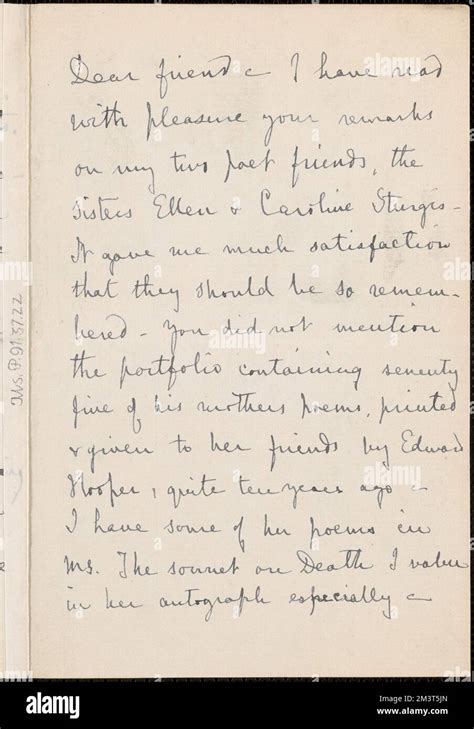 Dear friend – I have read
with pleasure your remarks
on my two poet friends, the
Sisters Ellen & Caroline Sturgis –
It gave me much satisfaction
that they should be so remem-
bered – You did not mention
the portfolio containing seventy
five of his mothers poems, printed
& given to her friends by Edward
Hooper, quite ten years ago –
I have some of her poems in
Ms. The sonnet on Death I value
in her autograph especially –
Ms.P.91.37.22
alamy
alamy
Image ID: 2M3T5JN
www.alamy.com